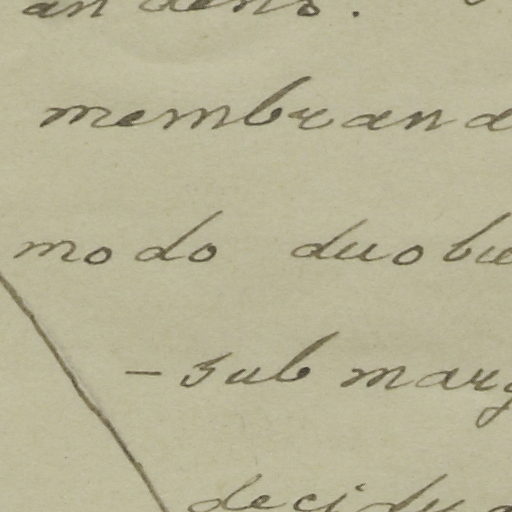 membrana
modo duobu
- sub marg
decidu